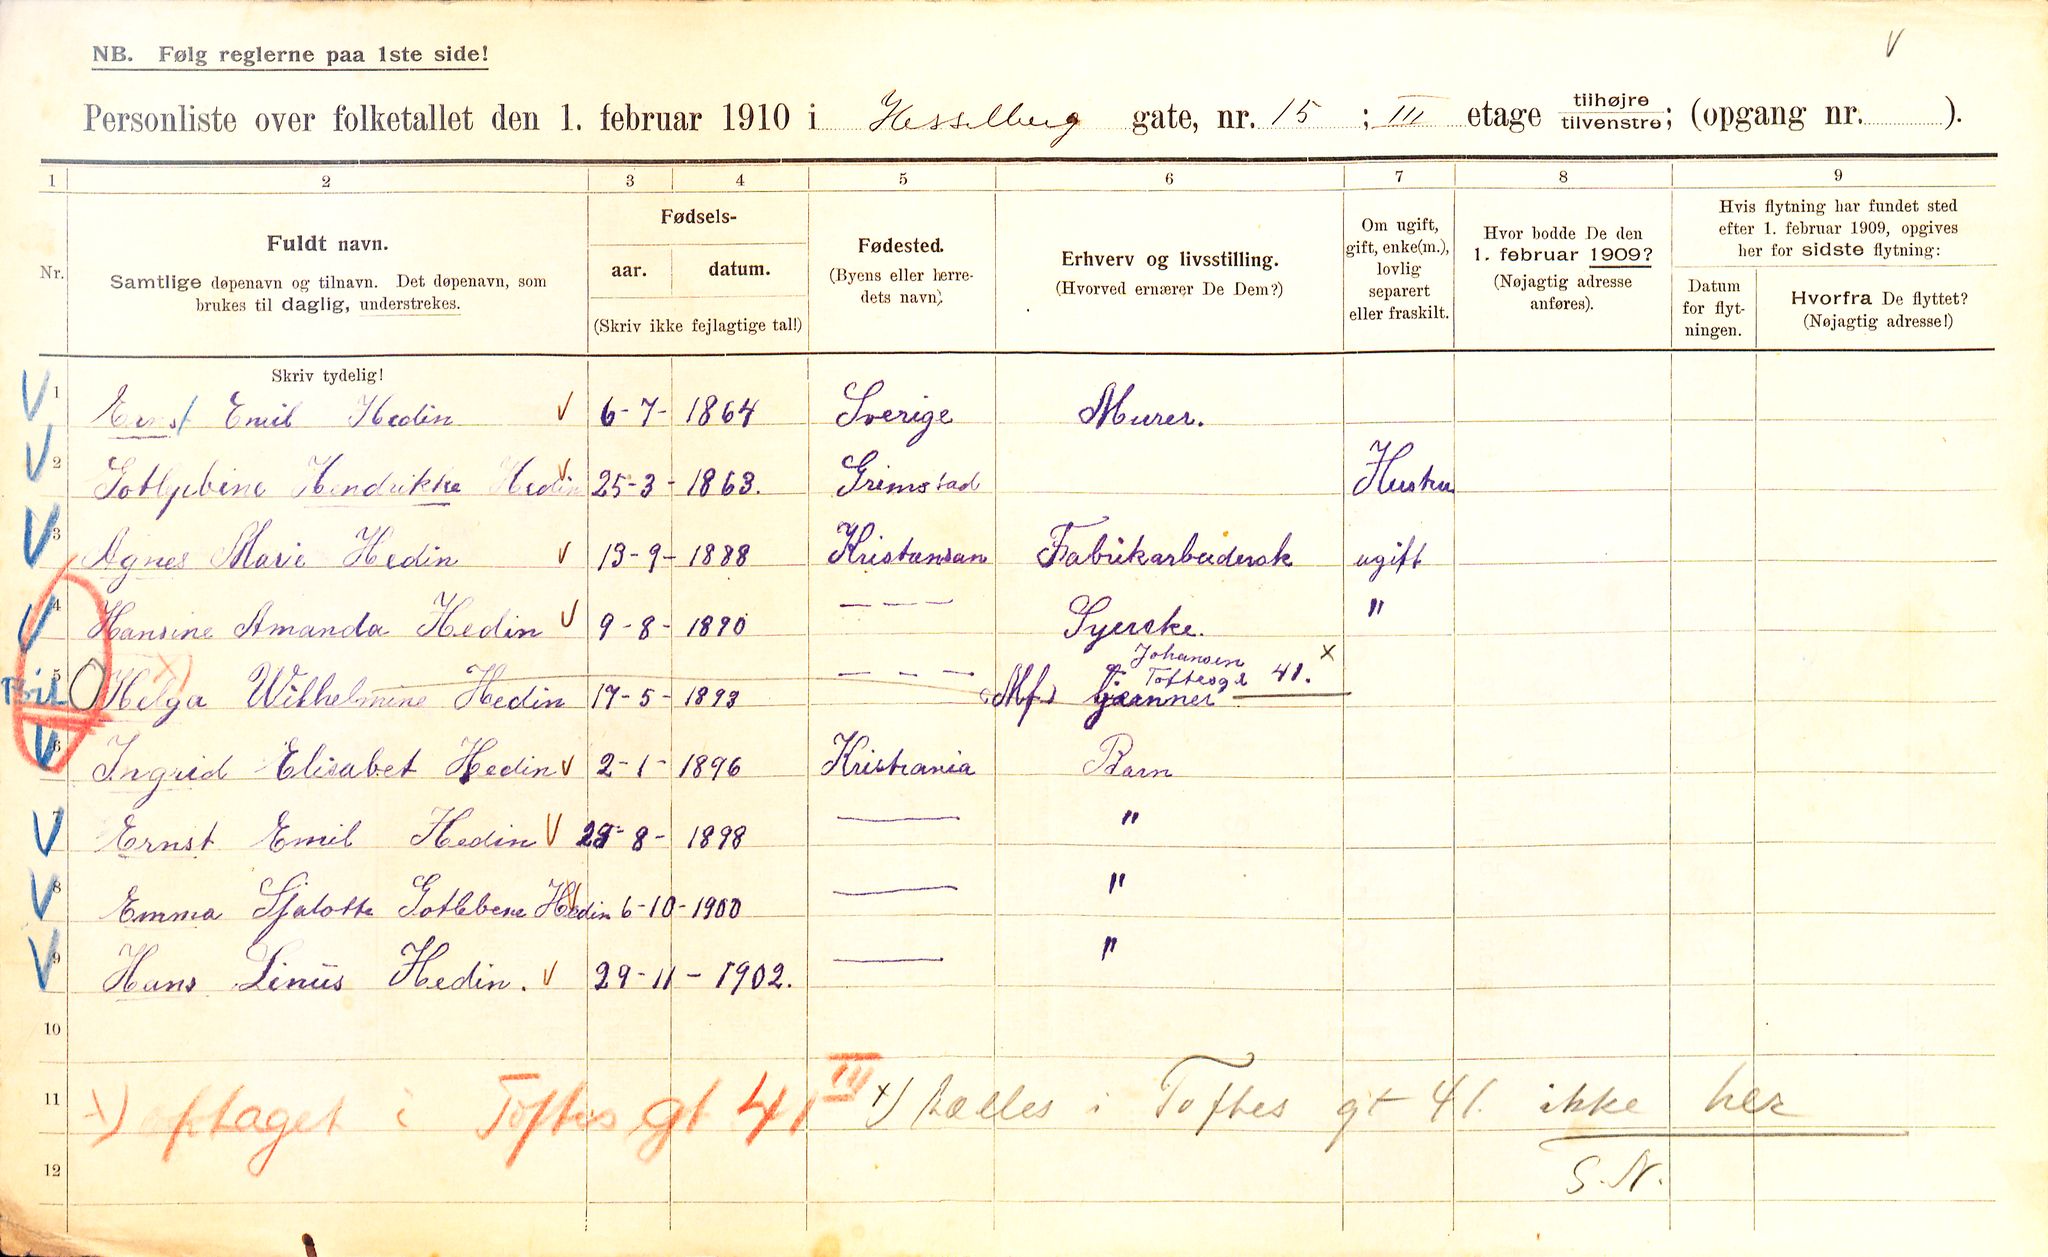 V
NB. Følg reglerne paa 1ste side!
Personliste over folketallet den 1. februar 1910 i Hesselberg gate, nr. 15 ; III etage tilhøjre tilvenstre; (opgang nr. ).
1 2 3 4 5 6 7 8 9
Nr.
Fuldt navn.
Samtlige døpenavn og tilnavn. Det døpenavn, som
brukes til daglig, understrekes.
Fødsels-
aar. datum.
(Skriv ikke fejlagtige tal!)
Fødested.
(Byens eller herre-
dets navn).
Erhverv og livsstilling.
(Hvorved ernærer De Dem?)
Om ugift,
gift, enke(m.),
lovlig
separert
eller fraskilt.
Hvor bodde De den
1. februar 1909?
(Nøjagtig adresse
anføres).
Hvis flytning har fundet sted
efter 1. februar 1909, opgives
her for sidste flytning:
Datum
for flyt-
ningen.
Hvorfra De flyttet?
(Nøjagtig adresse!)
Skriv tydelig!
V 1 Ernst Emil Hedin V 6-7- 1864 Sverige Murer.
V 2 Gotlybine Hendrikke Hedin V 25-3- 1863. Grimstad Hustru
V 3 Agnes Marie Hedin V 13-9- 1888 Kristansan Fabrikarbeidersk ugift
V 4 Hansine Amanda Hedin V 9-8- 1890 — — — Syerske. "
Johansen x
5 x) Helga Wilhelmine Hedin 17-5- 1893 — — — Toftesgt 41.
V 6 Ingrid Elisabet Hedin V 2-1- 1896 Kristiania Barn
V 7 Ernst Emil Hedin V 8- 1898 — "
V 8 Emma Sjalotte Gotlebene Hedin V 6-10-1900 — "
V 9 Hans Linus Hedin. V 29-11-1902. — "
10
11 x) optaget i Toftes gt 41 III x) tælles i Toftes gt 41. ikke her
12 S.N.